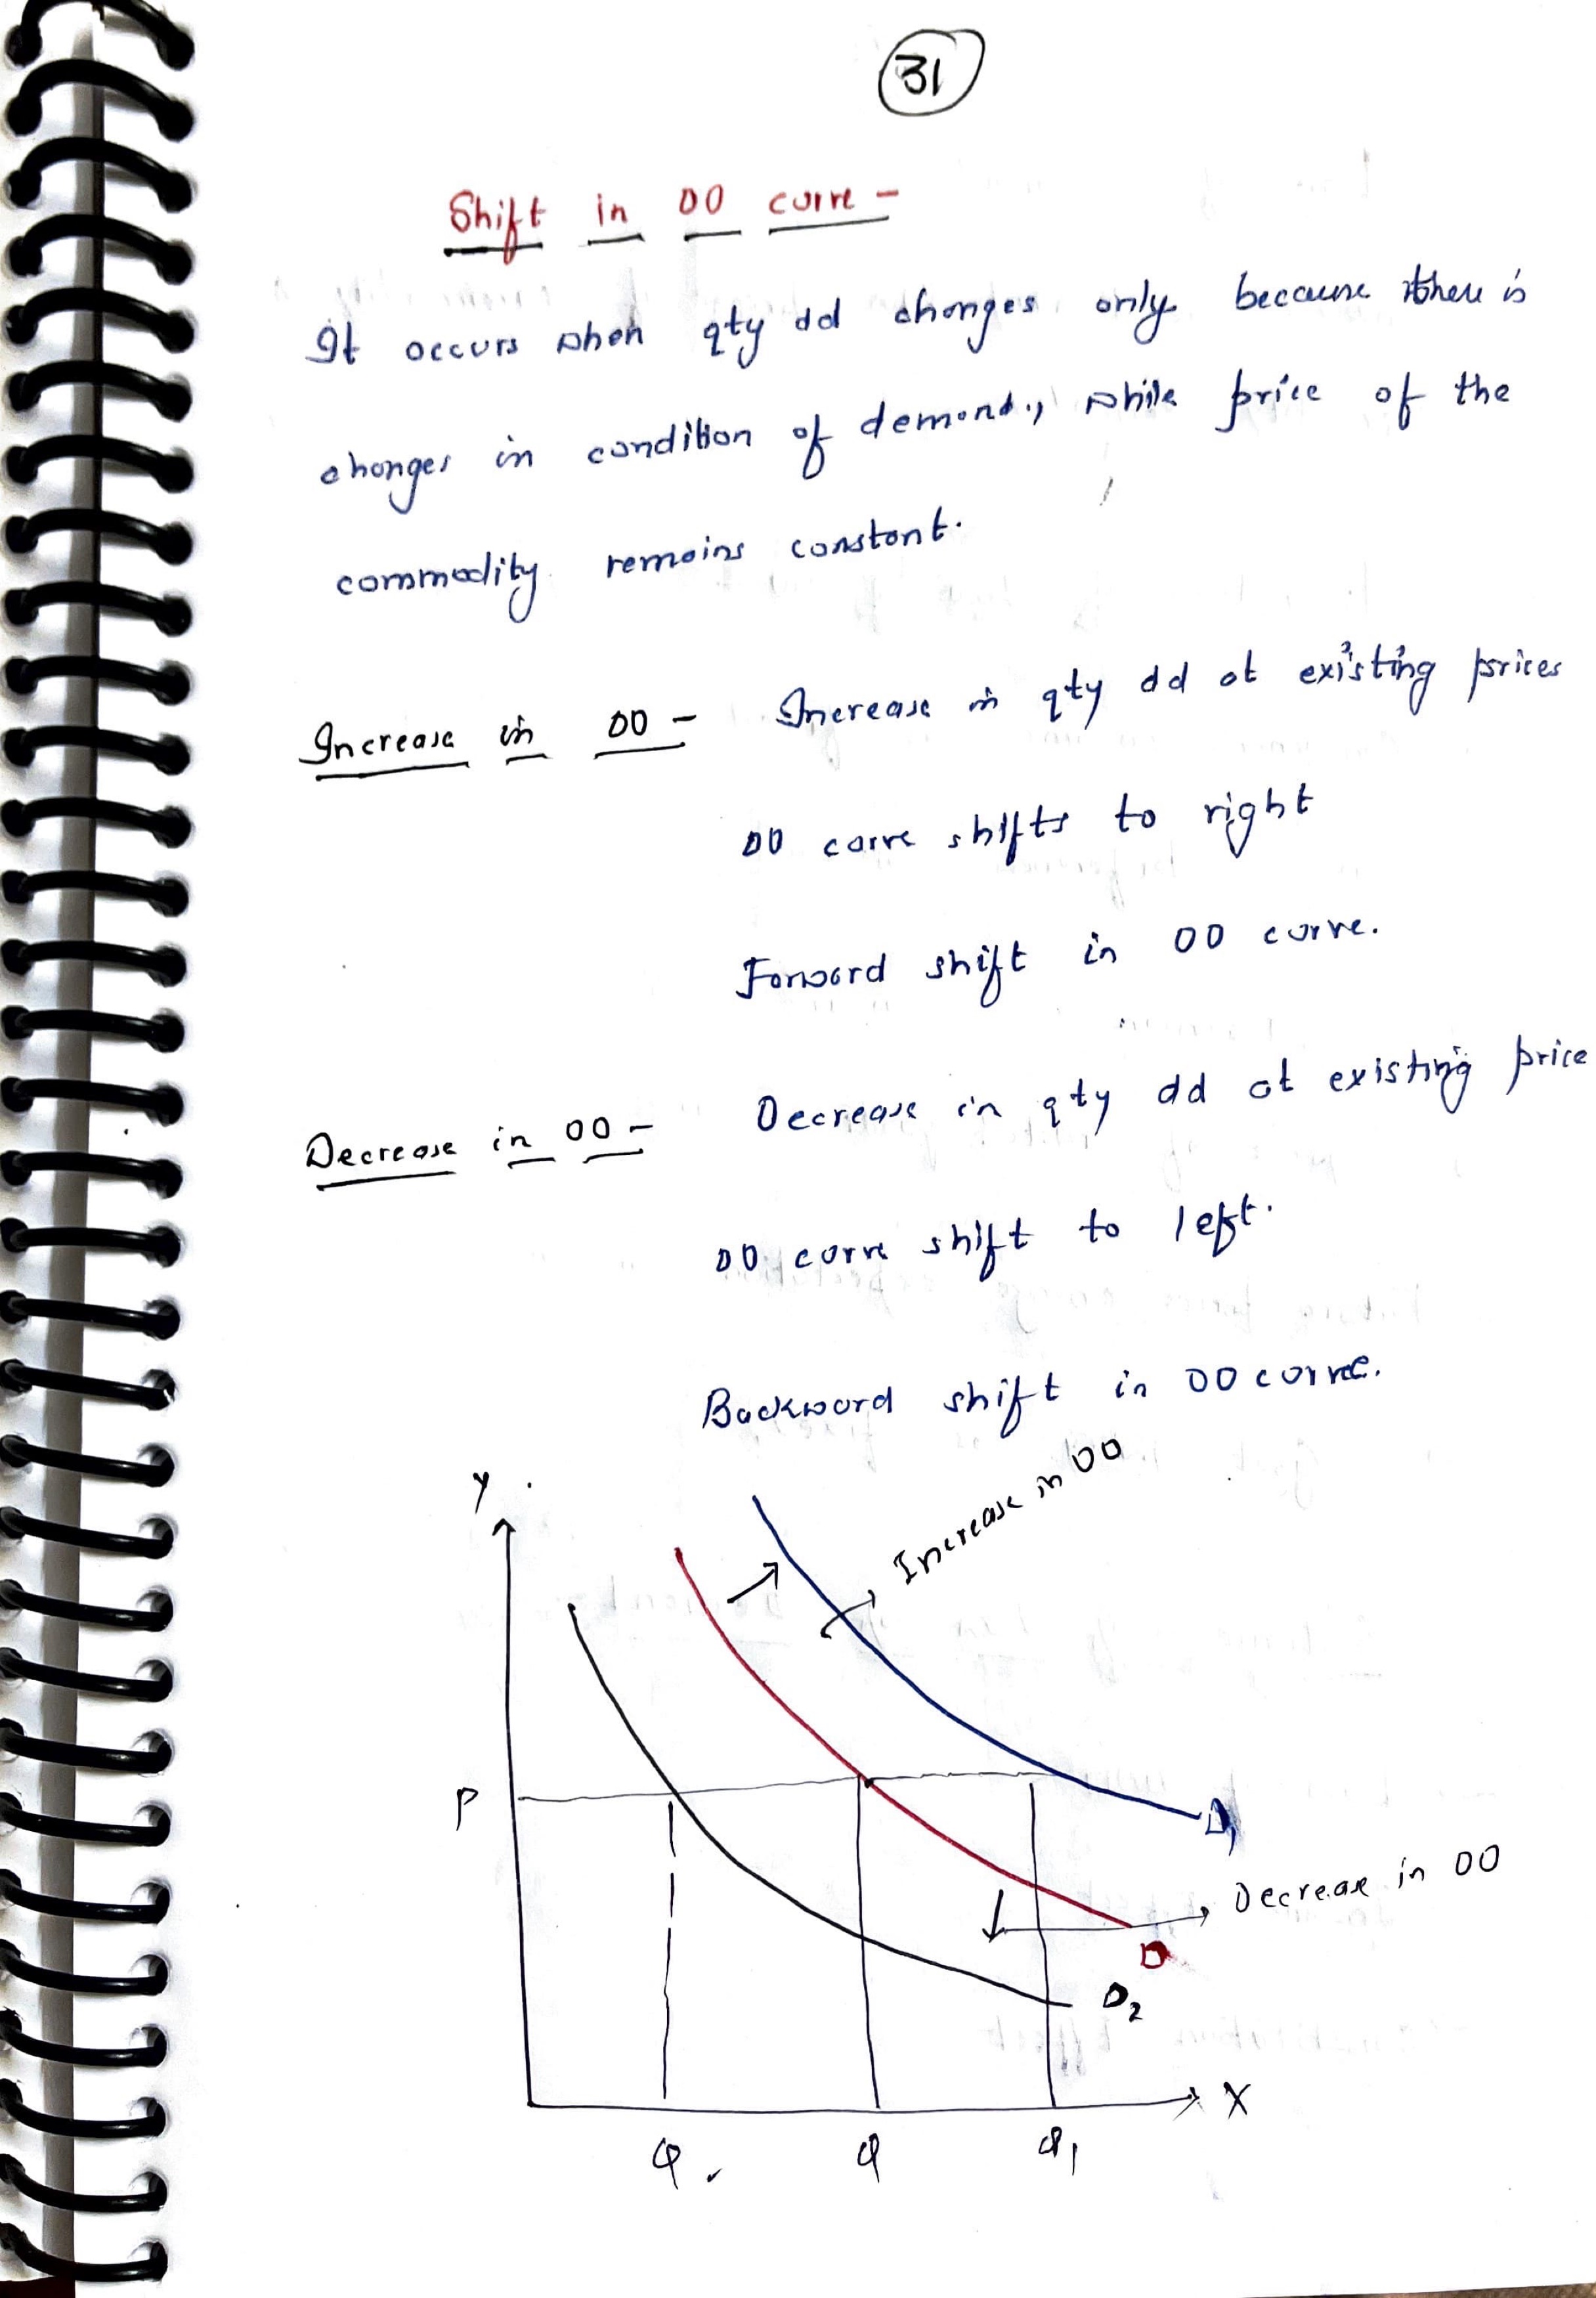 31
Shift in DD curve -
It occurs when qty dd changes only because there is
changes in condition of demand., while price of the
commodity remains constant.
Increase in DD - Increase in qty dd at existing prices
DD curve shifts to right
Forward shift in DD curve.
Decrease in DD - Decrease in qty dd at existing price
DD curve shift to left.
Backward shift in DD curve.
Y
Increase in DD
P
D1
Decrease in DD
D
D2
X
Q
Q
Q1